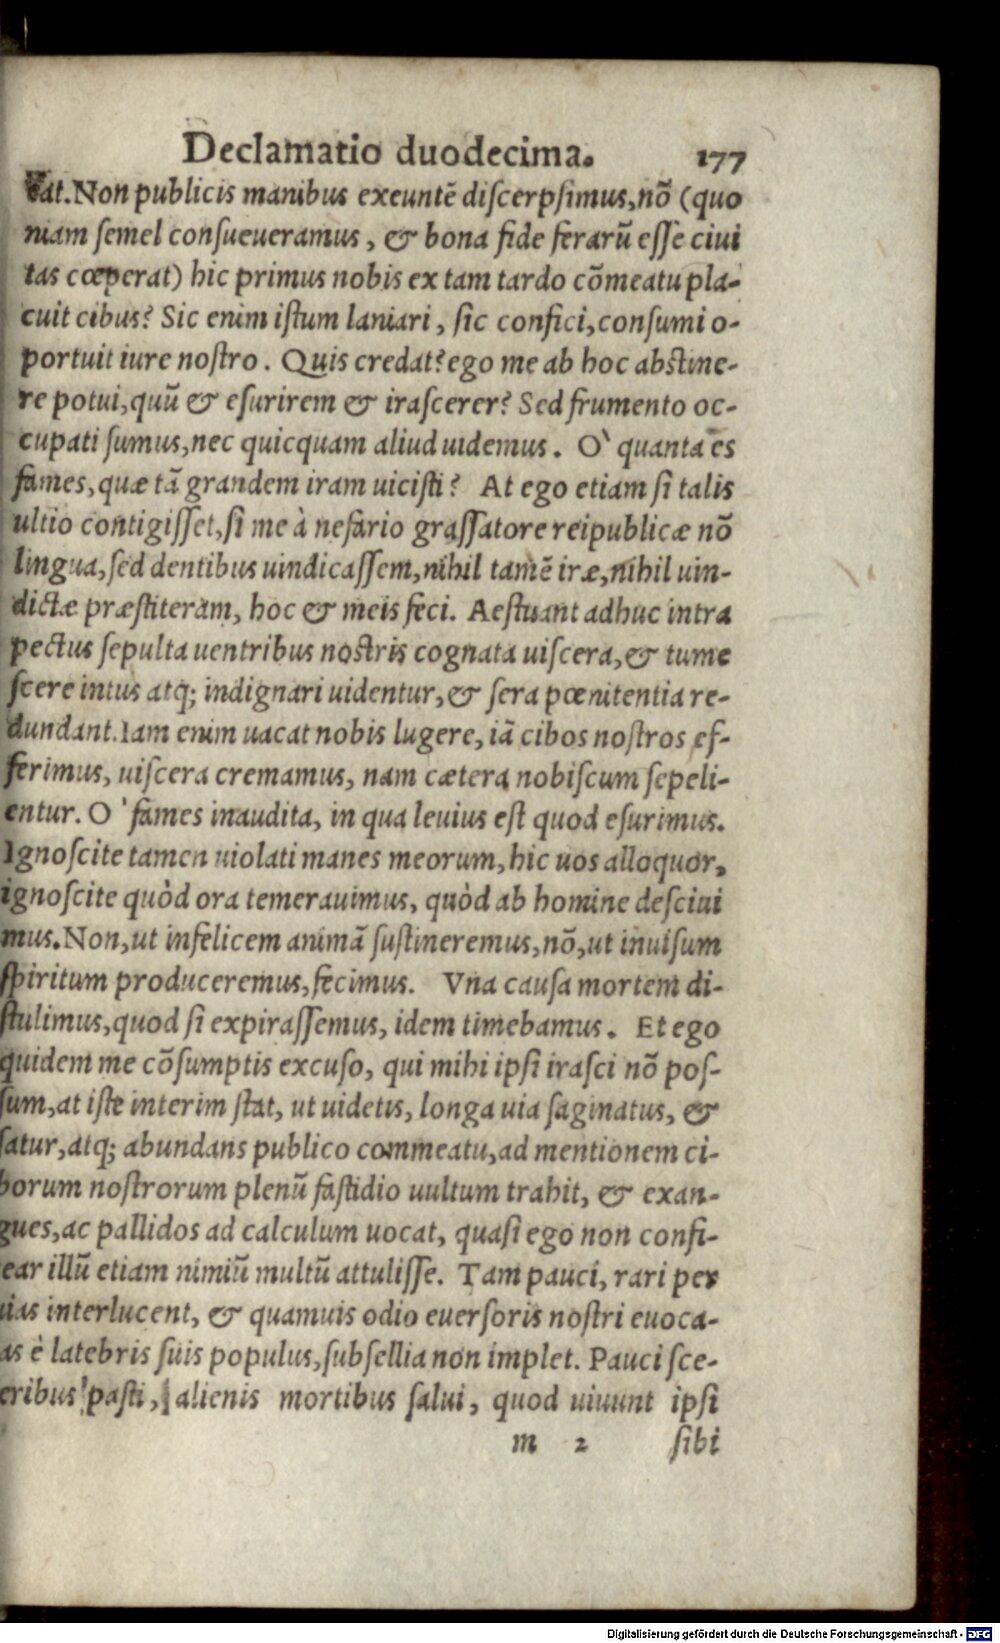 Declamatio duodecima. 177
tat. Non publicis manibus exeuntẽ discerpsimus, nõ (quo
niam semel consueueramus, & bona fide ferarũ esse ciui
tas cœperat) hic primus nobis ex tam tardo cõmeatu pla-
cuit cibus? Sic enim istum laniari, sic confici, consumi o-
portuit iure nostro. Quis credat? ego me ab hoc abstine-
re potui, quũ & esurirem & irascerer? Sed frumento oc-
cupati sumus, nec quicquam aliud uidemus. O` quanta es
fames, quæ tã grandem iram uicisti? At ego etiam si talis
ultio contigisset, si me à nefario grassatore reipublicæ nõ
lingua, sed dentibus uindicassem, nihil tamẽ iræ, nihil uin-
dictæ præstiteram, hoc & meis feci. Aestuant adhuc intra
pectus sepulta uentribus nostris cognata uiscera, & tume
scere intus atq; indignari uidentur, & sera pœnitentia re-
dundant. Iam enim uacat nobis lugere, iã cibos nostros ef-
ferimus, uiscera cremamus, nam cætera nobiscum sepeli-
entur. O ` fames inaudita, in qua leuius est quod esurimus.
Ignoscite tamen uiolati manes meorum, hic uos alloquor,
ignoscite quòd ora temerauimus, quòd ab homine desciui
mus. Non, ut infelicem animã sustineremus, nõ, ut inuisum
spiritum produceremus, fecimus. Vna causa mortem di-
stulimus, quod si expirassemus, idem timebamus. Et ego
quidem me cõsumptis excuso, qui mihi ipsi irasci nõ pos-
sum, at iste interim stat, ut uidetis, longa uia saginatus, &
satur, atq; abundans publico commeatu, ad mentionem ci-
borum nostrorum plenũ fastidio uultum trahit, & exan-
gues, ac pallidos ad calculum uocat, quasi ego non confi-
ear illũ etiam nimiũ multũ attulisse. Tam pauci, rari per
uias interlucent, & quamuis odio euersoris nostri euoca-
as è latebris suis populus, subsellia non implet. Pauci sce-
eribus pasti, alienis mortibus salui, quod uiuunt ipsi
m 2 sibi
Digitalisierung gefördert durch die Deutsche Forschungsgemeinschaft - DFG